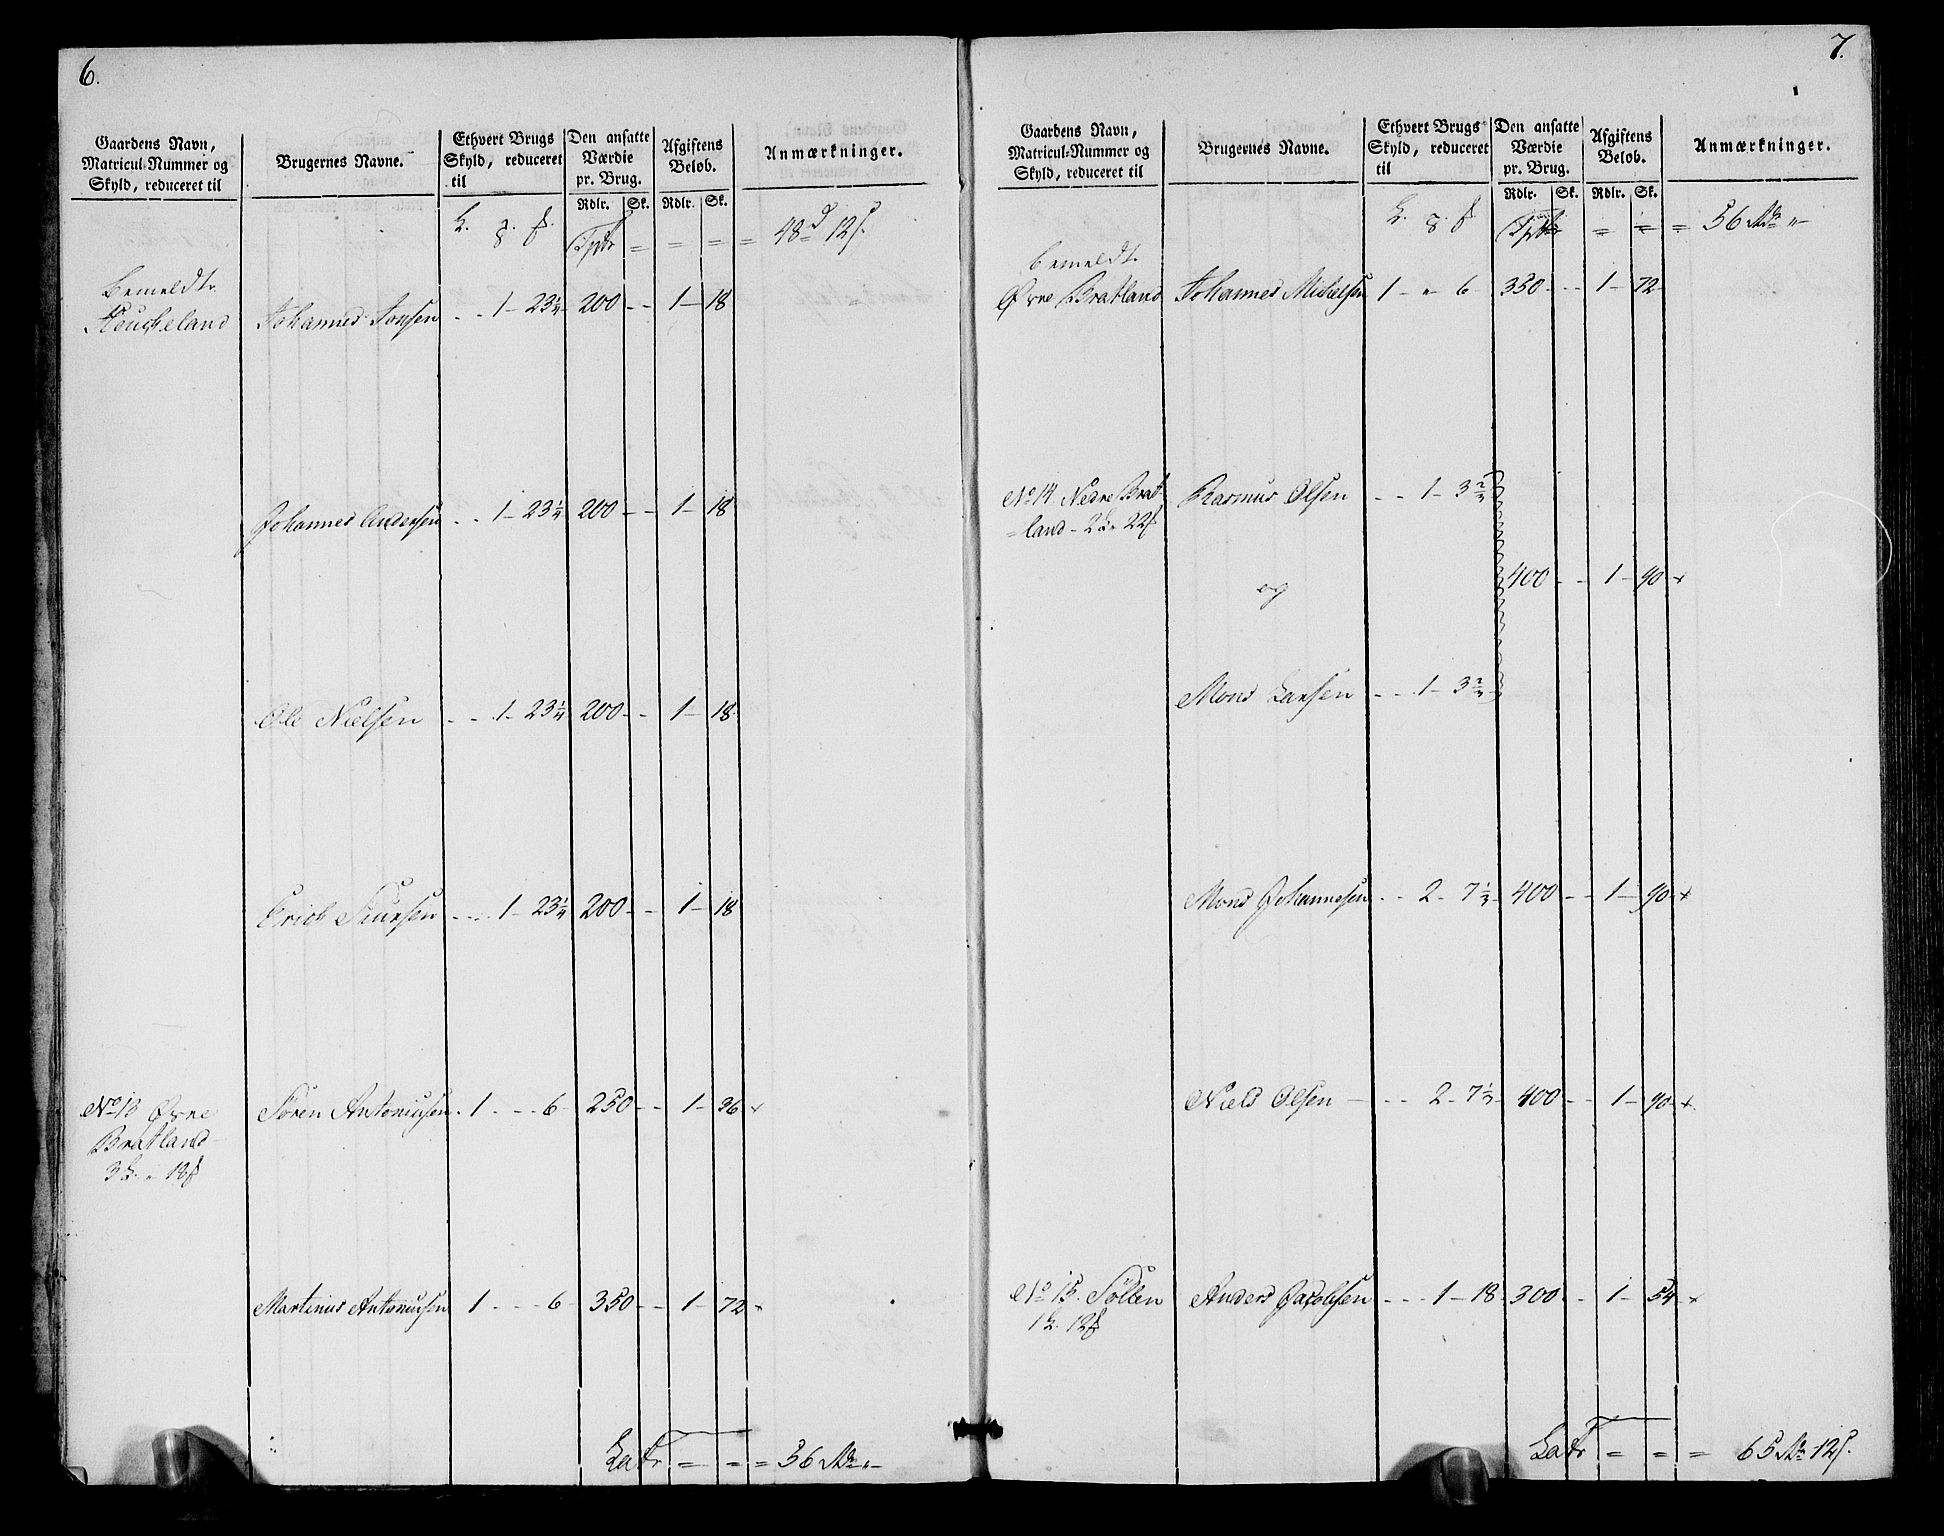 6.
Gaardens Navn,
Matricul-Nummer og
Skyld, reduceret til
Brugernes Navne.
Ethvert Brugs
Skyld, reduceret
til
Den ansatte
Værdie
pr. Brug.
Rdlr. Sk.
Afgiftens
Beløb.
Rdlr. Sk.
Anmærkninger.
48 12
bemeldte
Johannes Jonsen - - 1 - 23¼ 200 - - 1 - 18
Johannes Andersen - - 1 - 23¼ 200 - - 1 - 18
Ole Nielsen - - 1 - 23¼ 200 - - 1 - 18
Erich - - 1 - 23¼ 200 - - 1 - 18
No 13 Øvre Søren Antoniusen . 1 - - 6 - 250 - - 1 - 36
Bratland
Martinus Antoniusen 1 - - 6 - 350 - - 1 - 72
Latr = = = 56
7.
Gaardens Navn,
Matricul-Nummer og
Skyld, reduceret til
Brugernes Navne.
Ethvert Brugs
Skyld, reduceret
til
Den ansatte
Værdie
pr. Brug.
Rdlr. Sk.
Afgiftens
Beløb.
Rdlr. Sk.
Anmærkninger.
= = = 56
bemeldte
Øvre Bratland Johannes Michelsen 1 - " 6 - 350 - - 1 - 72
No 14 Nedre Brat Rasmus Olsen - - 1 - 3
=land
og 400 - - 1 - 90
Mons Larsen - - 1 - 3
Mons Johannesen - - 2 - 7 400 - - 1 - 90
Niels Olsen - - 2 - 7 400 - - 1 - 90
No 15 Anders Jacobsen - - 1 - 18 - 300 - - 1 - 54
Latr = = = 65 12